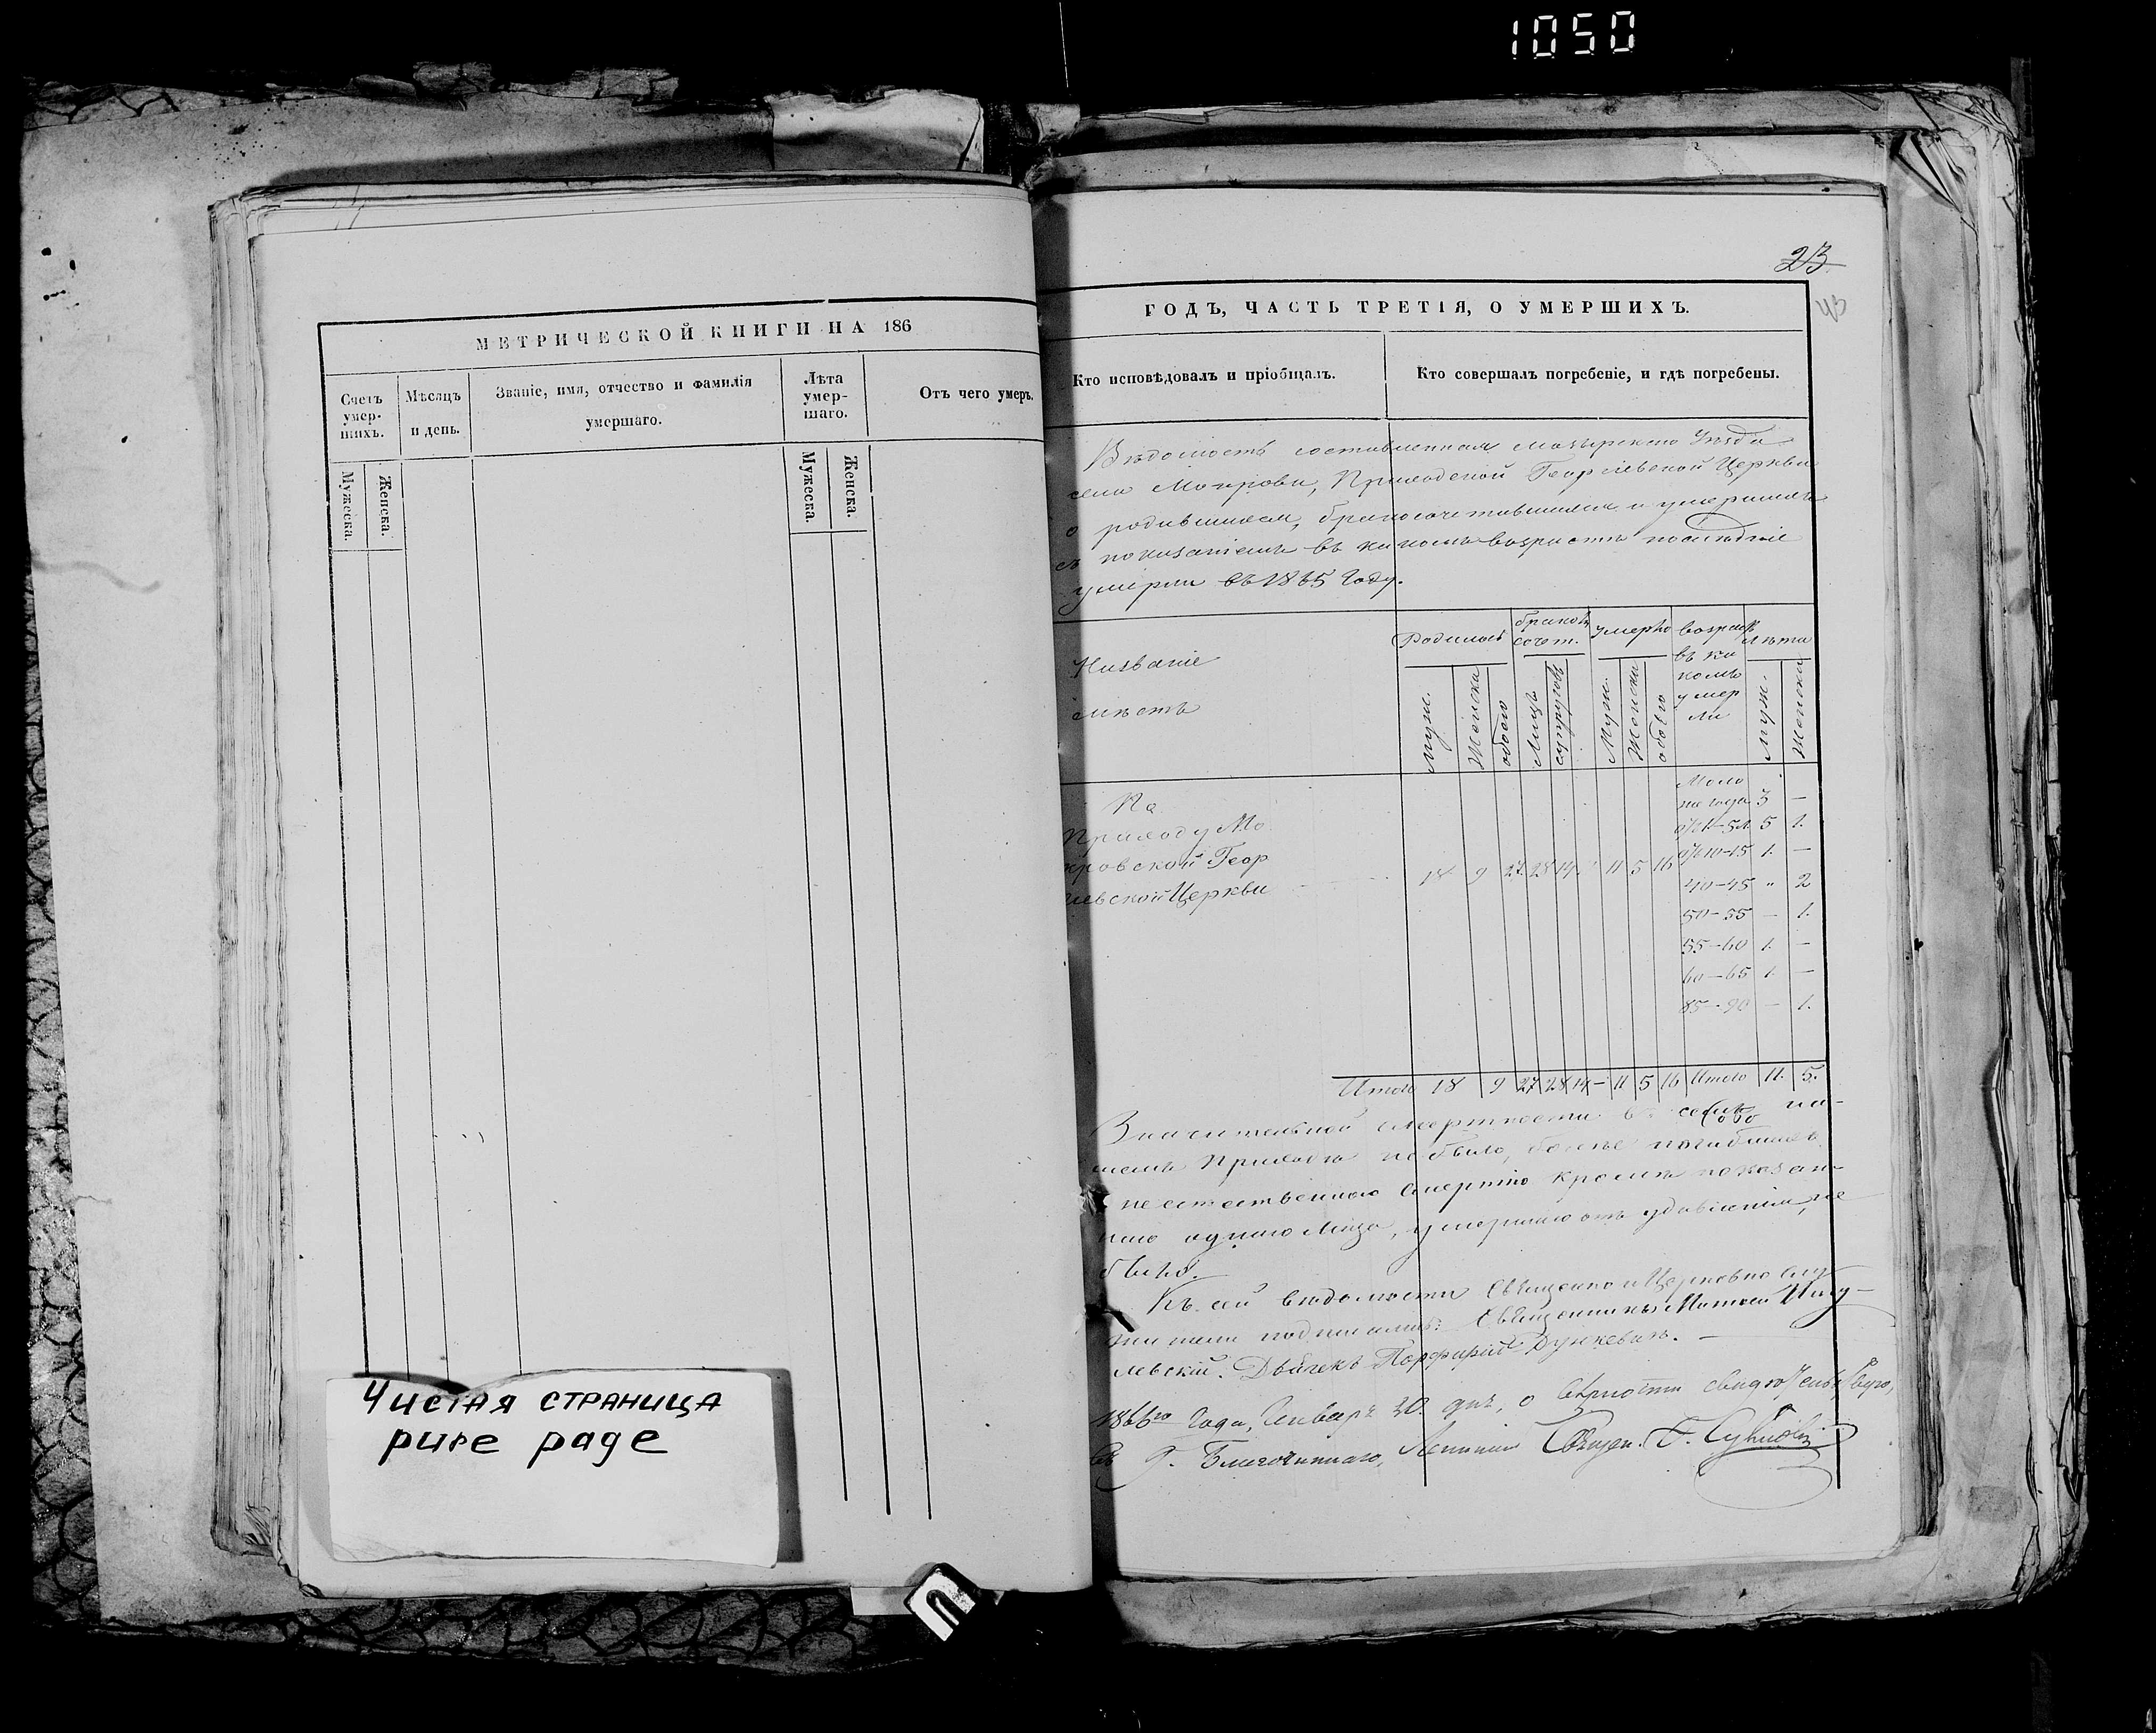 1050
МЕТРИЧЕСКОЙ КНИГИ НА 186
Счетъ умер-шихъ.
Мѣсяцъ и день.
Званіе, имя, отчество и фамилія умершаго.
Лѣта умер-шаго.
Отъ чего умеръ.
Мужеска.
Женска.
Мужеска.
Женска.
Чистая страница
pure page
23
43
ГОДЪ, ЧАСТЬ ТРЕТІЯ, О УМЕРШИХЪ.
Кто исповѣдовалъ и пріобщалъ.
Кто совершалъ погребеніе, и гдѣ погребены.
Вѣдомость составленная Мозырскаго Уѣзда
села Мокрови, Приходской Георгіевской Церкви
о родившихся, бракосочетавшихся и умершихъ
съ показаніемъ въ какомъ возрастѣ послѣдніе
умерли въ 1865 году.
Названіе
мѣстъ
Родилось
браковъ сочет.
Умерло
возраст въ ка комъ умер ли
Лѣта
Муж.
Женска
обоего
Лицъ
супруговъ
Муж.
Женска
обоего
Муж.
Женска
По
Приходу Мо
кровской Геор
гіевской Церкви
18 9 27 28 14 " 11 5 16
года 3 —
1-5 5 1.
10-15 1. —
40-45 " 2
50-55 — 1.
55-60 1. —
60-65 1. —
85-90 — 1.
Итого 18 9 27 28 14 — 11 5 16 Итого 11. 5.
Значительной смертности въ на-
шемъ Приходѣ не было, болѣе погибшихъ
неестественною смертію кромѣ показан-
наго одного лица, умершаго отъ удавленія, не
было.
Къ сей вѣдомости Священно и Церковно слу
жители подписались: Священникъ Матѳей
левскій. Дьячекъ Порфирій Дункевичъ. —
1866го Года, Генваря 30. дня, о вѣрности
Благочиннаго, Священ.